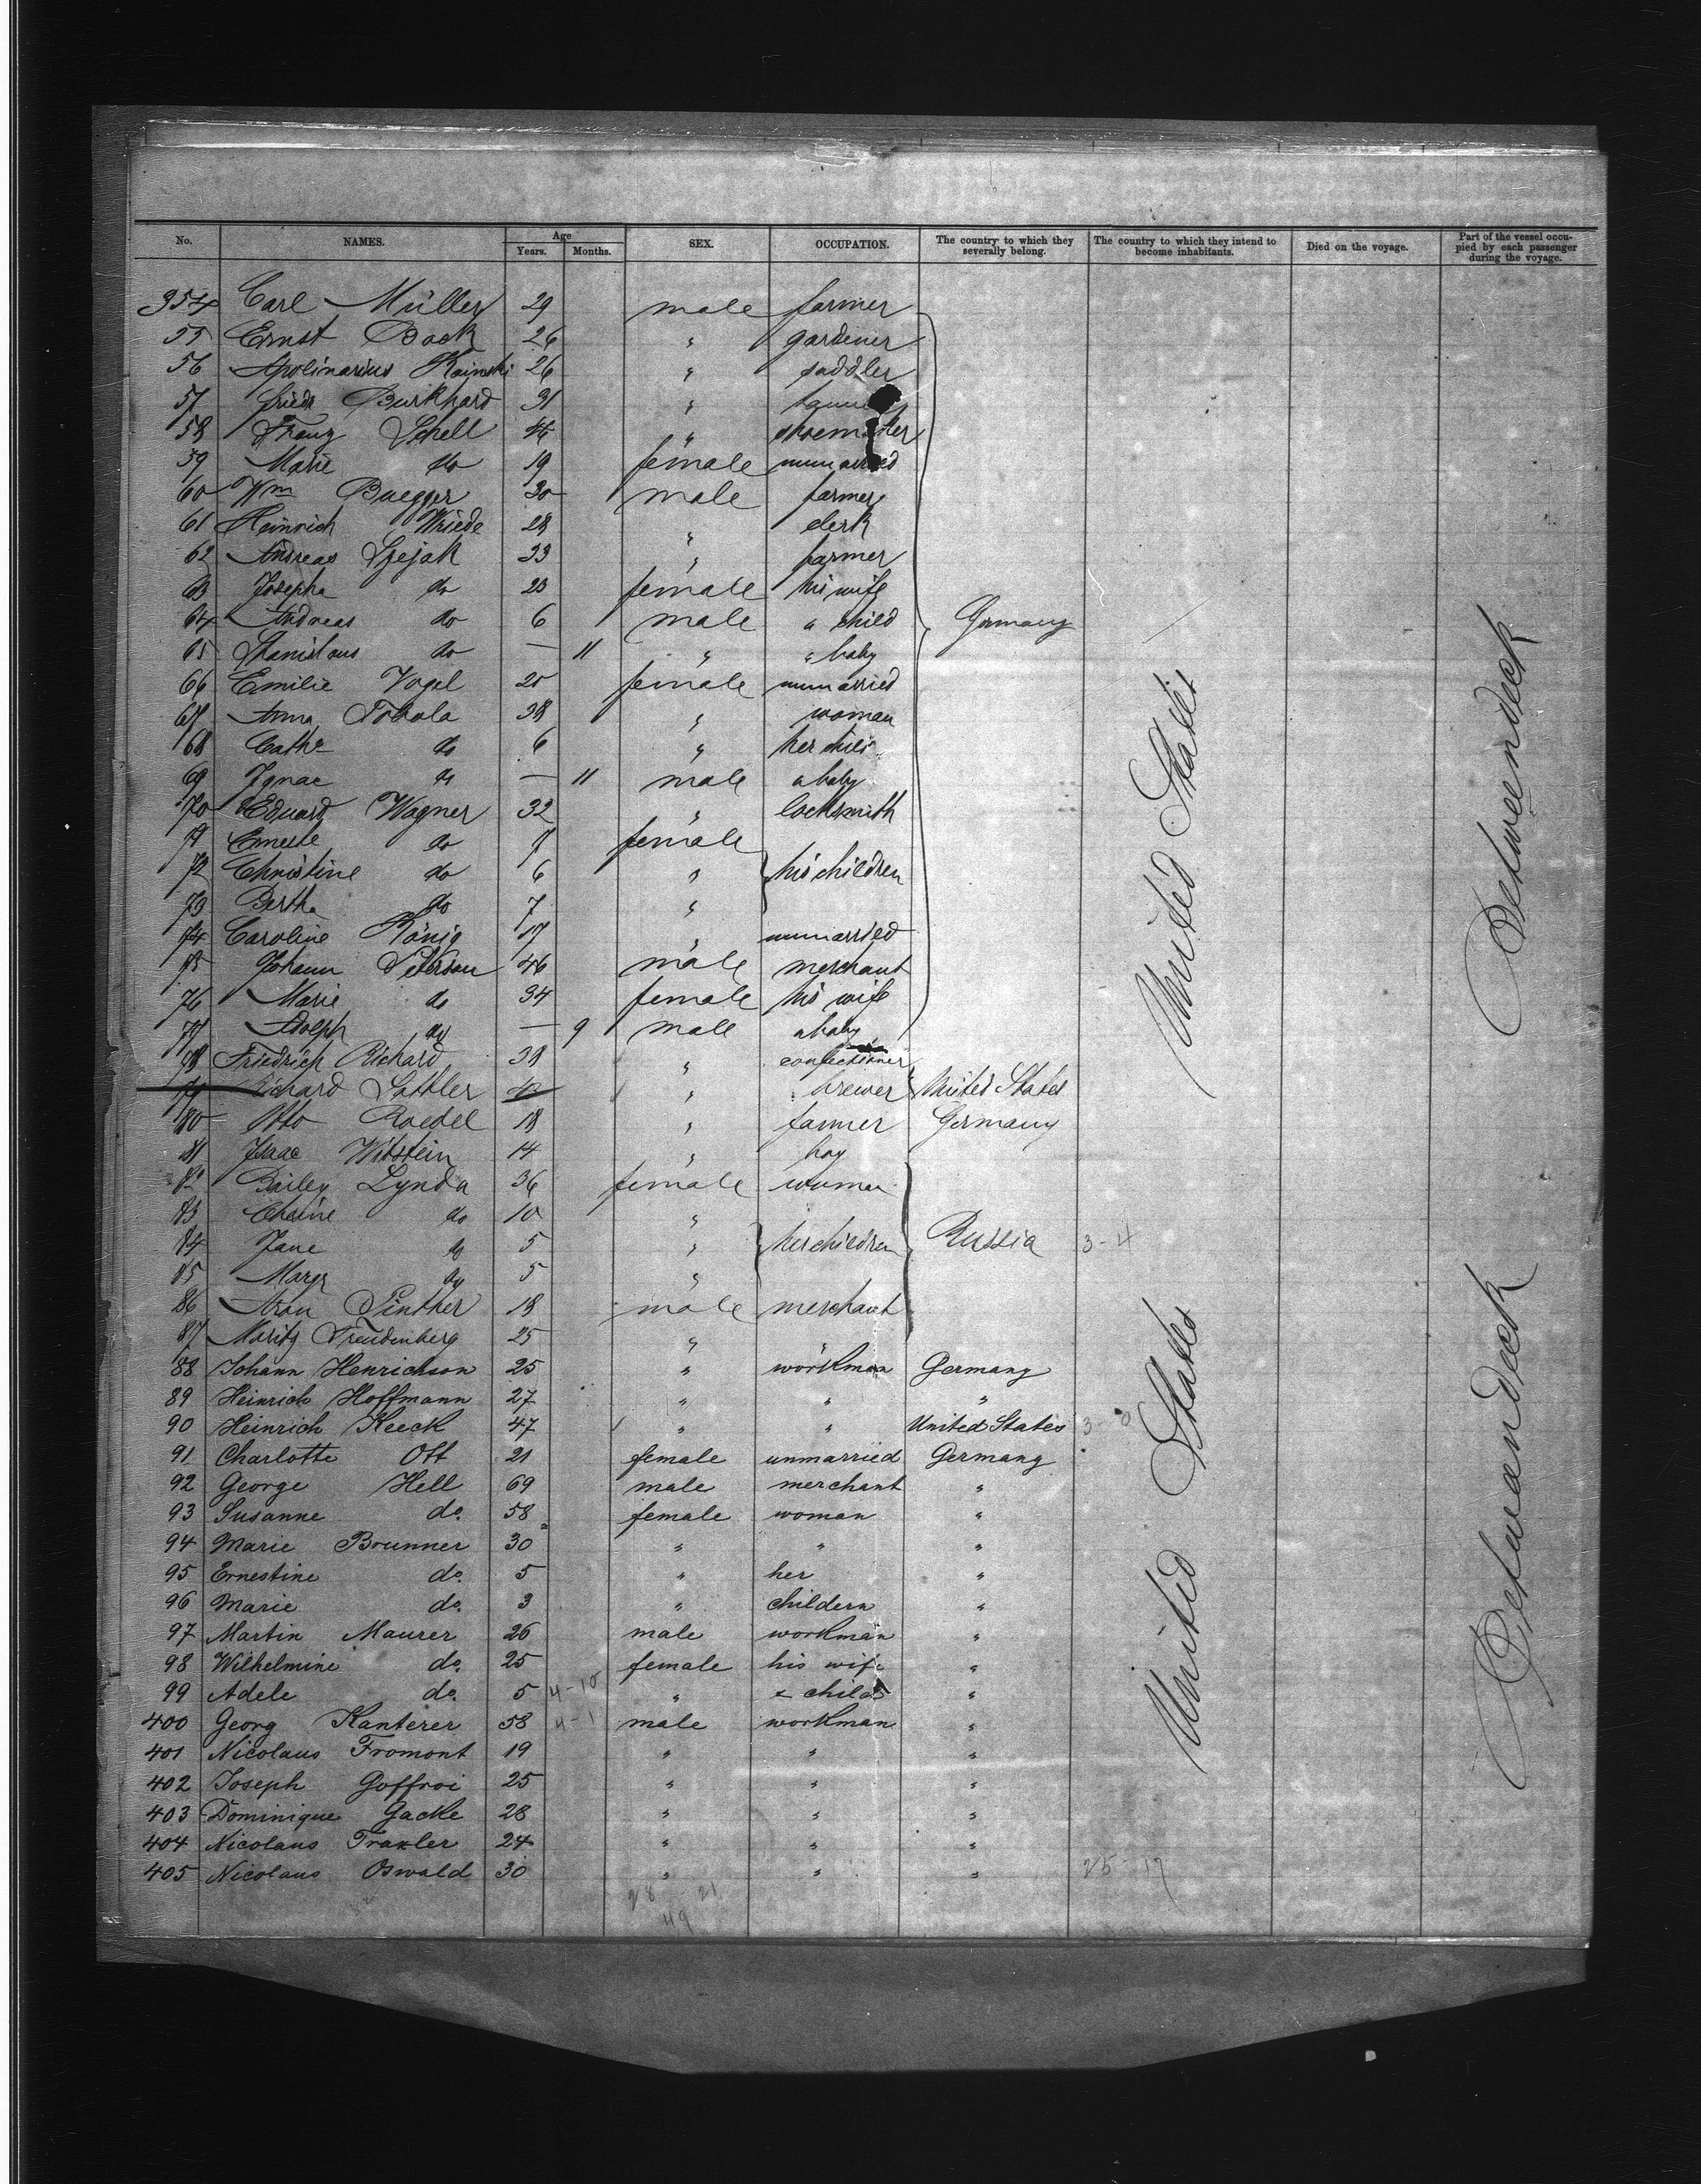 No. NAMES. Age Years. Months. SEX. OCCUPATION. The country to which they severally belong. The country to which they intend to become inhabitants. Died on the voyage. Part of the vessel occupied by each passenger during the voyage.
354 Carl Müller 29 male farmer
55 Ernst Bock 26 " gardener
56 Apolinarius Kainski 26 " saddler
57 Friedr Burkhard 31 "
58 Franz Schell 46 " shoemaker
59 Marie do 19 female unmarried
60 Wm Buegger 30 male farmer
61 Heinrich Wriede 28 " clerk
62 Andreas Szejak 33 " farmer
63 Josepha do 23 female his wife
64 Andreas do 6 male a child Germany
65 Stanislaus do — 11 " a baby
66 Emilie Vogel 20 female unmarried
67 Anna Tobola 38 " woman
68 Cathe do 6 " her child
69 Ignac do — 11 male a baby
70 Eduard Wagner 32 " locksmith
71 do female
72 Christine do 6 " his children
73 Bertha do 7 "
74 Caroline König 17 " unmarried
75 Johann Peterson 46 male merchant
76 Marie do 34 female his wife
77 Adolph do — 9 male a baby
78 Friedrich Richard 38 " confectioner
79 Richard Sattler 40 " brewer United States
80 Otto Roedel 18 " farmer Germany
81 Isaac Witstein 14 " boy
82 Bailey Lynda 36 female woman
83 Chaine do 10 "
84 Jane do 5 " her children Russia 3-4
85 Margr do 5 "
86 Aron Pinther 18 male merchant
87 Moritz Freudenberg 25 " "
88 Johann Henrichson 25 " workman Germany
89 Heinrich Hoffmann 27 " " "
90 Heinrich Keeck 47 " " United States 3 0
91 Charlotte Ott 21 female unmarried Germany
92 George Hell 69 male merchant "
93 Susanne do. 58 female woman "
94 Marie Brunner 30 " " "
95 Ernestine do. 5 " her "
96 Marie do. 3 " childern "
97 Martin Maurer 26 male workman "
98 Wilhelmine do. 25 female his wife "
99 Adele do. 5 4-10 " child "
400 Georg Kanterer 58 4-1 male workman "
401 Nicolaus Fromont 19 " " "
402 Joseph Goffroi 25 " " "
403 Dominique Gacke 28 " " "
404 Nicolaus Traxler 24 " " "
405 Nicolaus Oswald 30 " " " 25-17
28 21
49
United States
United States
Betweendeck
Betweendeck